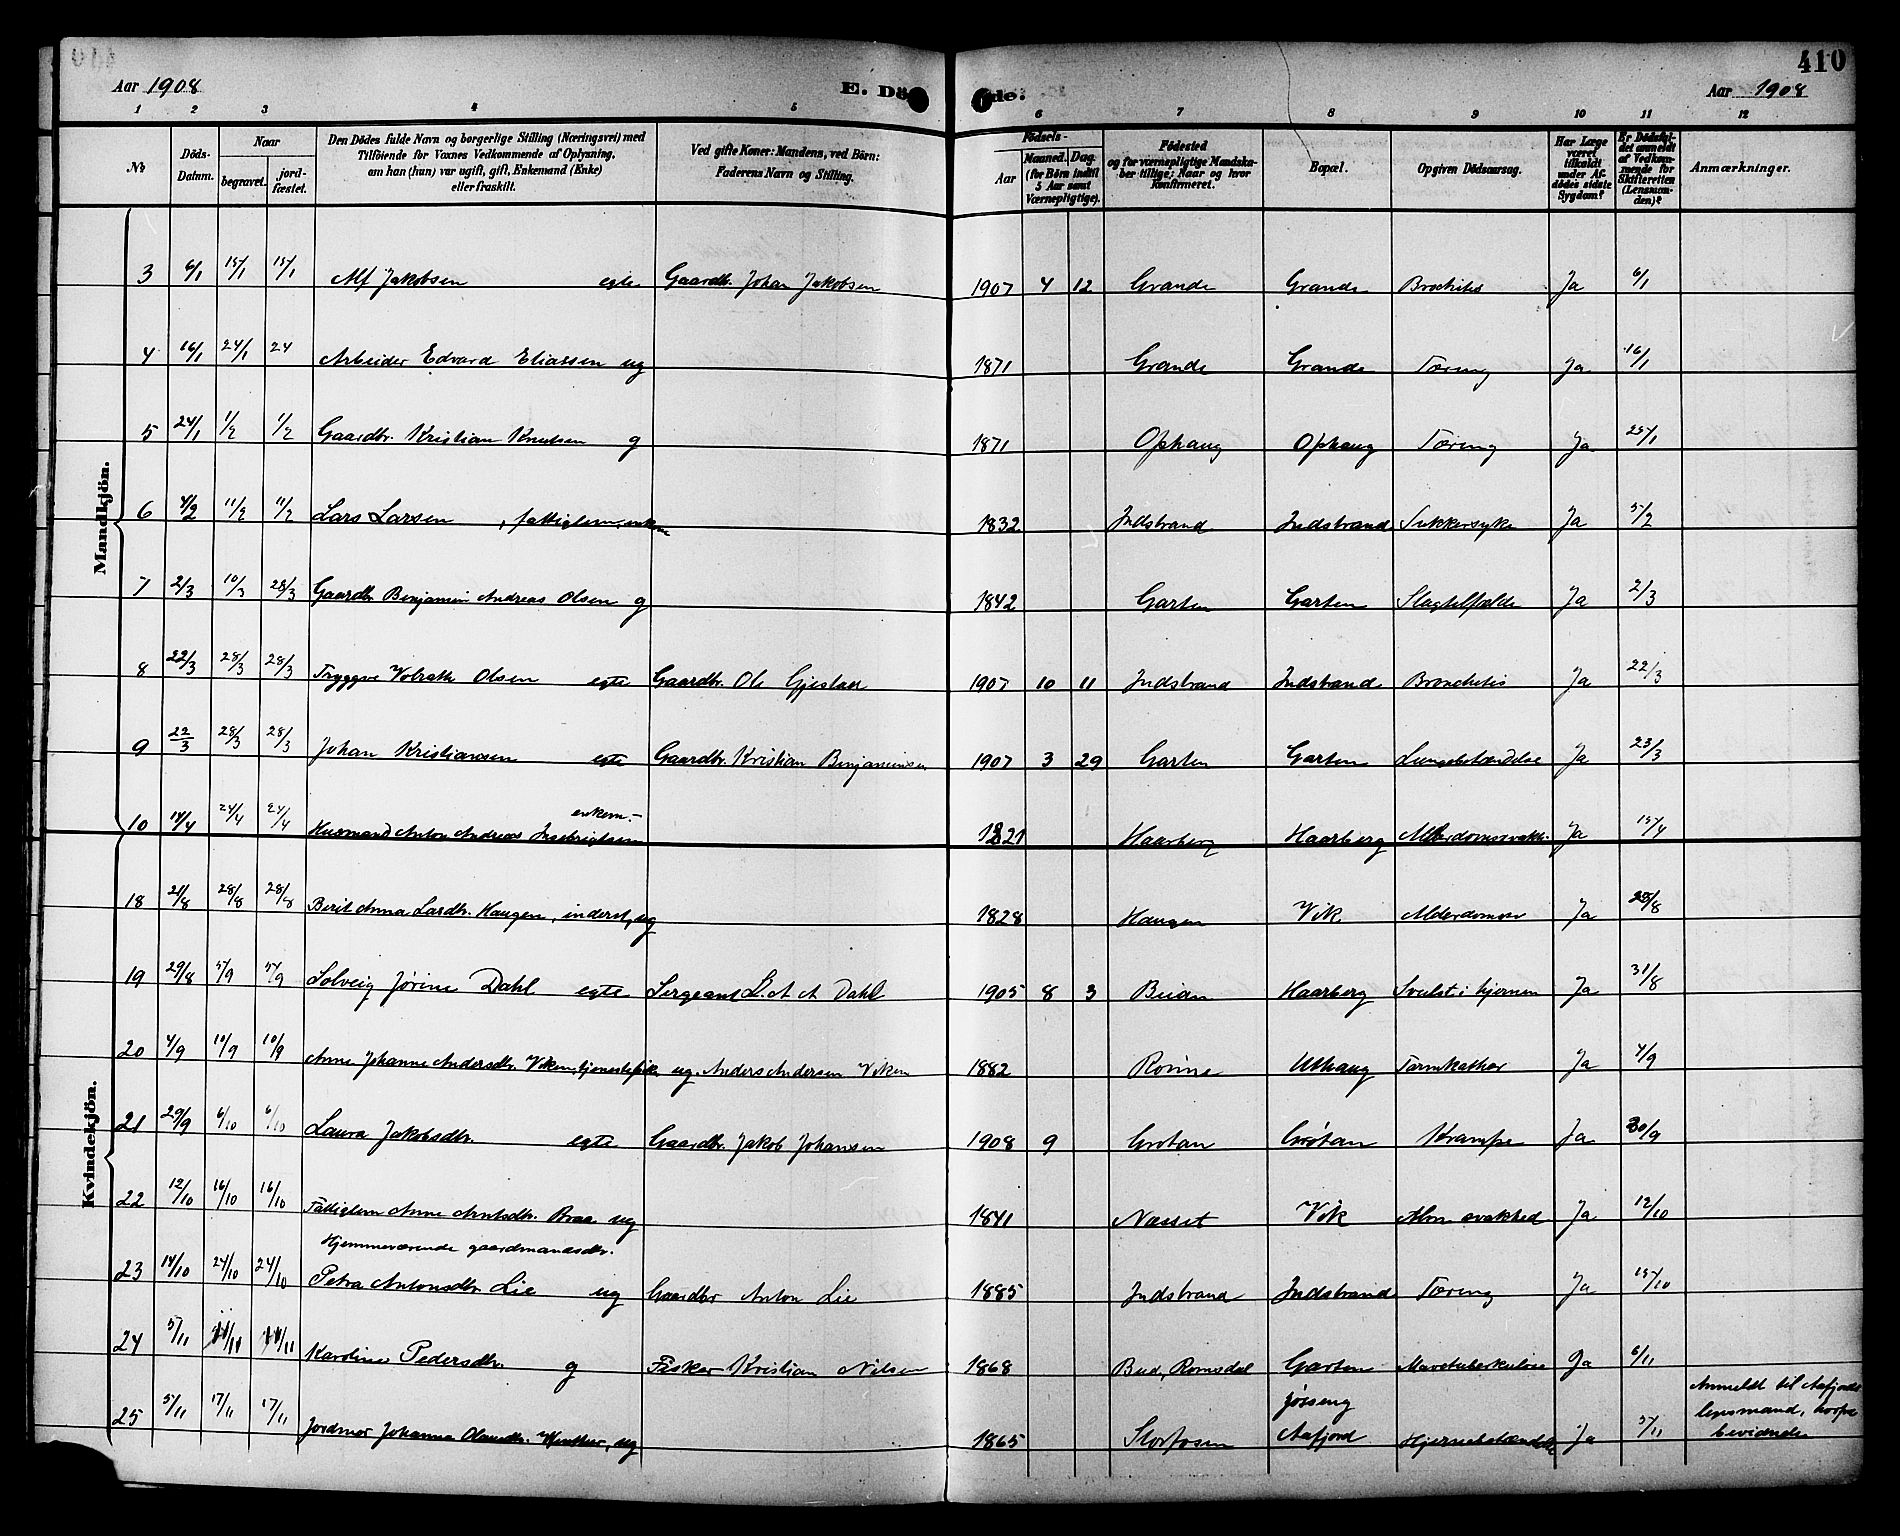 410
Aar 1908
E. Døde.
Aar 1908
1 2 3 4 5 6 7 8 9 10 11 12
No
Döds-Datum.
Naar
begravet.
jordfæstet.
Den Dödes fulde Navn og borgerlige Stilling (Næringsvei) med
Tilföiende for Voxnes Vedkommende af Oplysning,
om han (hun) var ugift, gift, Enkemand (Enke)
eller fraskilt.
Ved gifte Koner: Mandens, ved Börn:
Faderens Navn og Stilling.
Födsels-
Aar
Maaned. Dag.
(for Börn indtil 5 Aar samt Værnepligtige).
Födested
og for værnepligtige Mandskaber tillige: Naar og hvor konfirmeret.
Bopæl.
Opgiven Dödsaarsag.
Har Læge været tilkaldt under Afdödes sidste Sygdom?
Er Dödsfaldet anmeldt af Vedkommende for Skifteretten (Lensmanden)?
Anmærkninger.
Mandkjön.
3 6/1 15/1 15/1 Alf Jakobsen egte Gaardb. Johan Jakobsen 1907 4 12 Grande Grande Brochitis Ja 6/1
4 16/1 24/1 24 Arbeider Edvard Eliassen ug 1871 Grande Grande Tæring Ja 16/1
5 24/1 1/2 1/2 Gaardbr. Kristian Knutsen g 1871 Ophaug Ophaug Tæring Ja 25/1
6 4/2 11/2 11/2 Lars Larsen, fattiglem, enkem 1832 Indstrand Indstrand Sukkersyke Ja 5/2
7 2/3 10/3 28/3 Gaardbr Benjamin Andreas Olsen g 1842 Garten Garten Slagtilfælde Ja 2/3
8 22/3 28/3 28/3 Tryggve Volrath Olsen egte Gaardbr. Ole Gjestad 1907 10 11 Indstrand Indstrand Bronchitis Ja 22/3
9 22/3 28/3 28/3 Johan Kristiansen egte Gaardbr. Kristian Benjaminsen 1907 3 29 Garten Garten Lungebetændelse Ja 23/3
enkem.-
10 14/4 24/4 24/4 Husmand Anton Andreas Ingebrigtsen 1821 Haarberg Haarberg Alderdomssvakh. Ja 15/4
Kvindekjön.
18 21/8 28/8 28/8 Berit Anna Larsdtr. Haugen, inderst, ug 1828 Haugen Vik Alderdomsv Ja 25/8
19 29/8 5/9 5/9 Solveig Jørine Dahl egte Sergeant L. A A Dahl 1905 8 3 Beian Haarberg Svulst i hjernen Ja 31/8
20 4/9 10/9 10/9 Anne Johanne Andersdtr. Viken, tjenestepike ug. Anders Andersen Viken 1882 Rönne Uthaug Tarmkathar Ja 4/9
21 29/9 6/10 6/10 Laura Jakobsdtr. egte Gaardbr. Jakob Johansen 1908 9 Grøtan Grøtan Krampe Ja 30/9
22 12/10 16/10 16/10 Fattiglem Anne Arntsdtr. Braa ug 1841 Næsset Vik Alm svakhed Ja 12/10
Hjemmeværende gaardmandsdtr.
23 14/10 24/10 24/10 Petra Antonsdtr Lie ug Gaardbr Anton Lie 1885 Indstrand Indstrand Tæring Ja 15/10
24 5/11 11/11 11/11 Karoline Pedersdtr. g Fisker Kristian Nilsen 1868 Bud, Romsdal Garten Mavetuberkulose Ja 6/11
25 5/11 17/11 17/11 Jordmor Johanna Olausdtr. ug 1865 Storfosen Jøsseng Aafjord Hjernebetændelse Ja 5/11 Anmeldt til Aafjords
lensmand,
bevidnelse